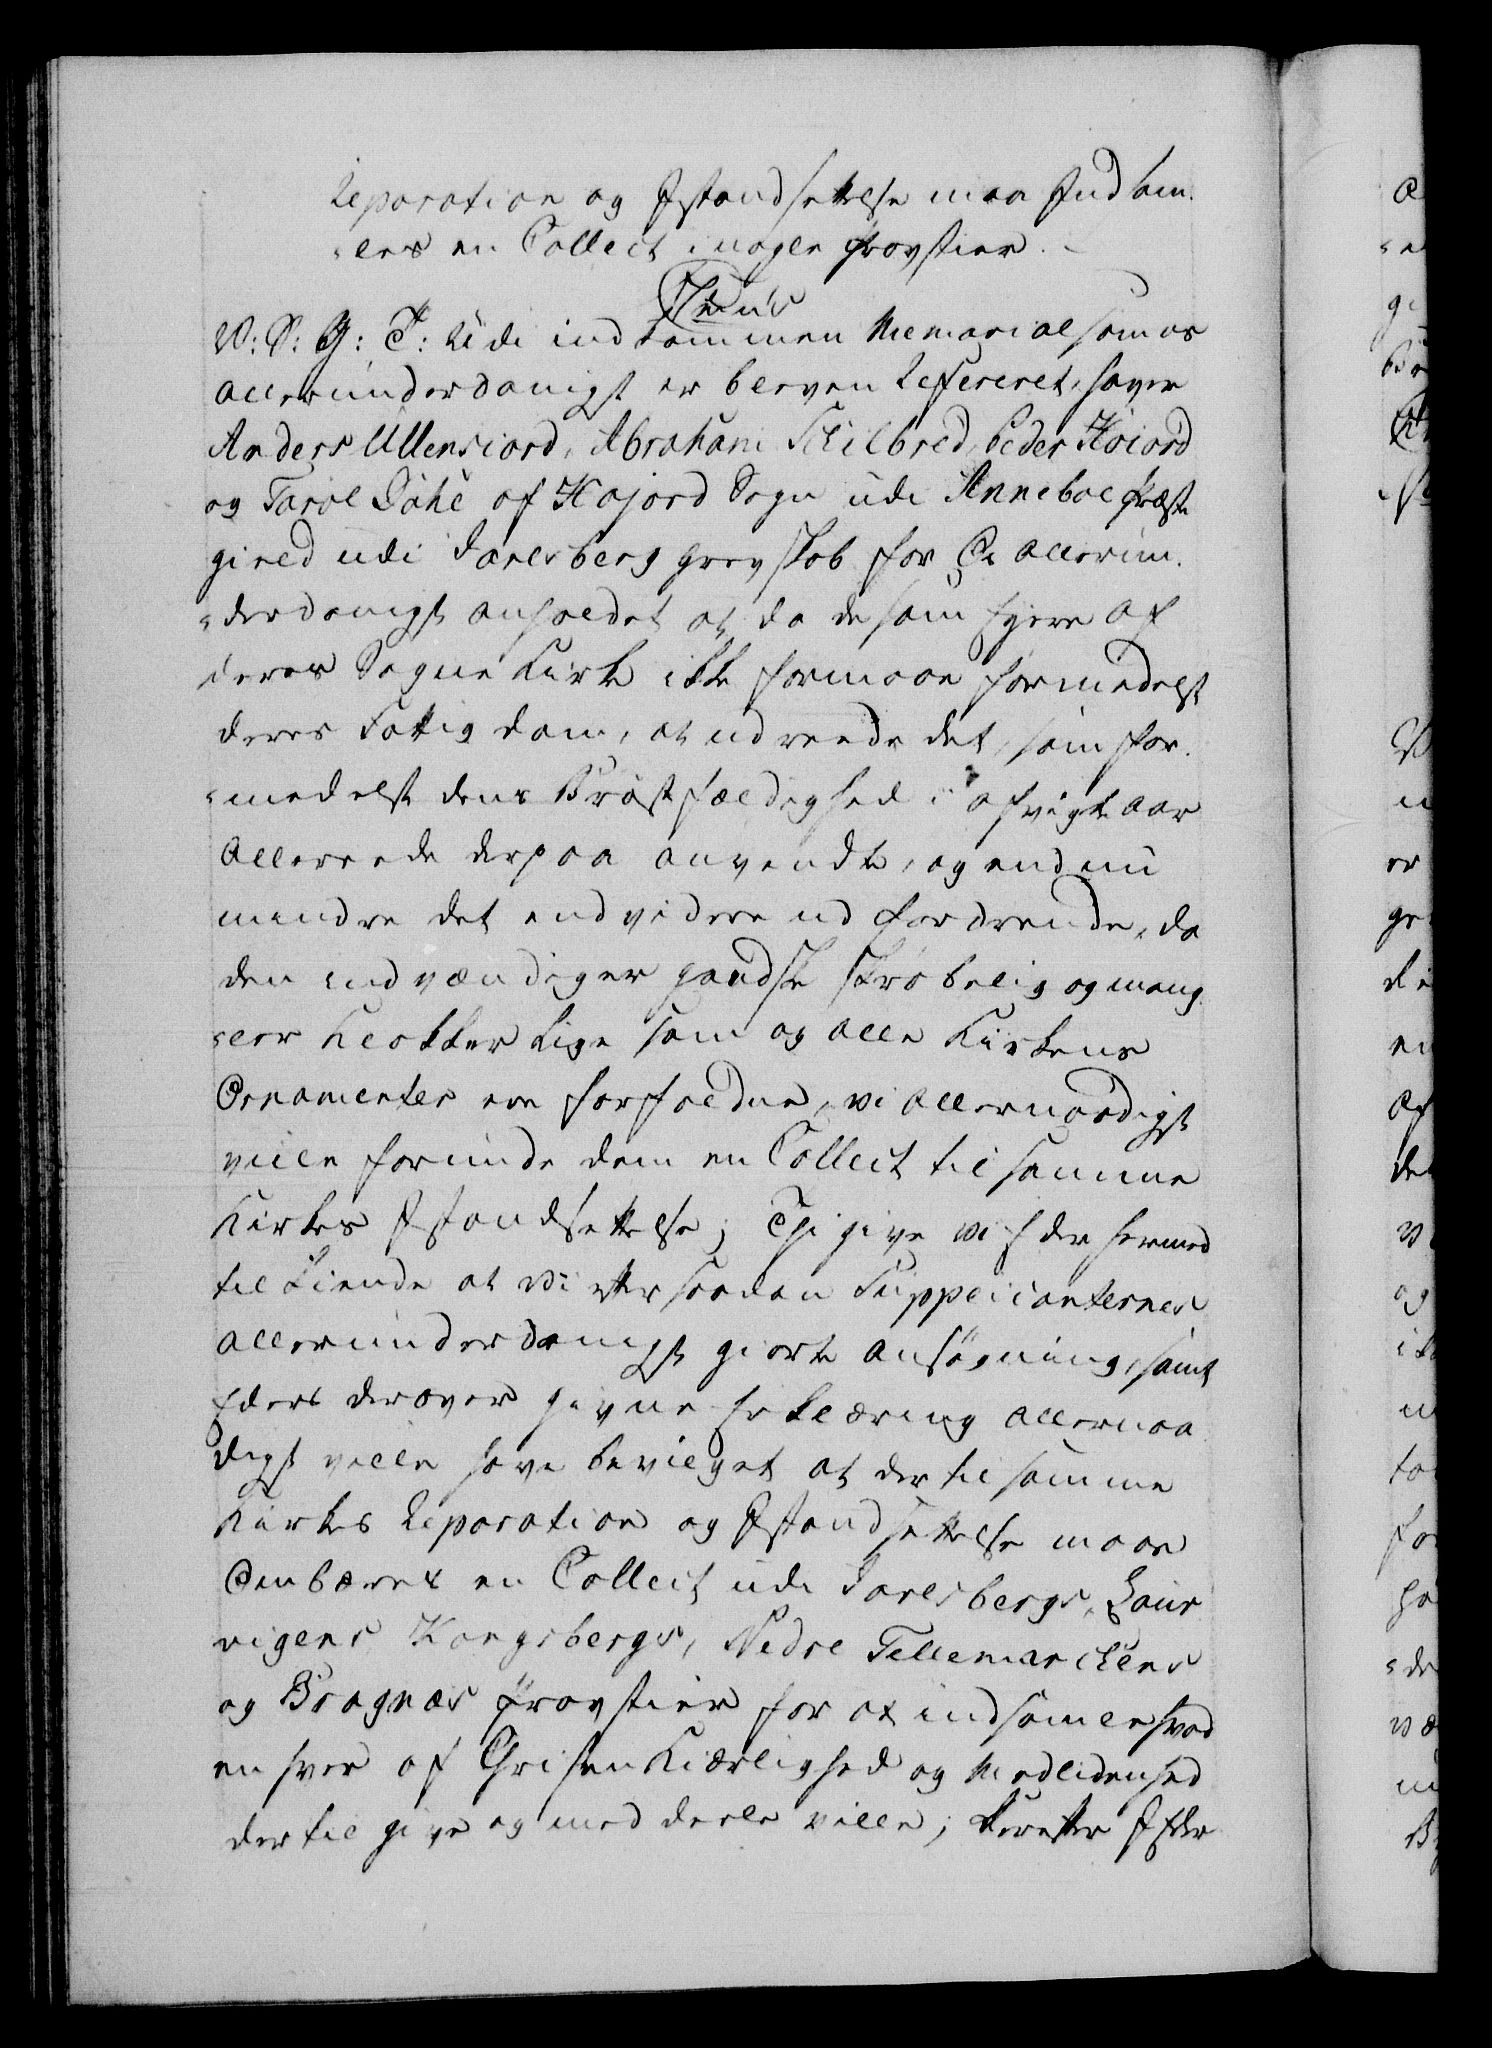 Reparation og Istandsettelse maa Indsam-
-les en Collect i nogle Provstier.
V: S: G: T: Udi indkommen Memorial som os
allerunderdanigst er bleven Refereret, haver
Anders Ullensiord, Abraham Skilbred, Peder Høiord
og Tarol Døhe af Højord Sogn udi Anneboe Præste
gield udi Jarlsberg Grevskab for Os allerun-
-derdanigst anholdet at da de som Eyere af
deres Sogne Kirke ikke formaae formedelst
deres Fattigdom, at udreede det, som for-
-medelst dens Brøstfældighed i afvigte Aar
allereede derpaa anvendte, og endnu
mindre det endvidere udfordrende, da
den indvændig er gandske skrøbelig og mang
-ler Klokker lige som og alle Kirkens
Ornamenter ere forfaldne, vi allernaadigst
ville forunde dem en Collect til samme
Kirkes Istandsettelse; Thi give vi Eder hermed
tilkiende at Vi efter saadan Supplicanternes
allerunderdanigst giorte Ansøgning, samt
Eders derover givne Erklæring allernaa
digst ville have bevilget at der til samme
Kirkes Reparation og Istandsettelse maae
Ombæres en Collect udi Jarlsbergs, Laur
vigens Kongsbergs, Nedre Tellemarckens
og Bragnæs Provstier for at indsamle hvad
en hver af Christen Kiærlighed og Medlidenhed
dertil give og meddeele ville; Herefter I Eder